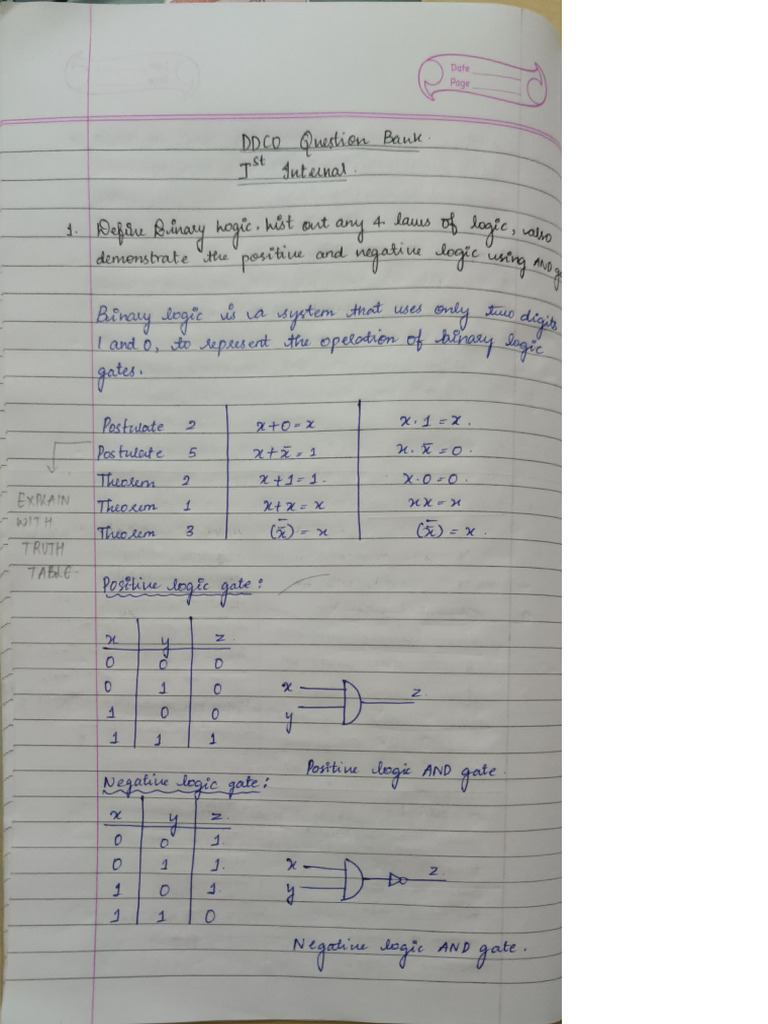 Date
Page
DDCO Question Bank.
Ist Internal.
1. Define Binary Logic. List out any 4 laws of logic, also
demonstrate the positive and negative logic using AND
Binary logic is a system that uses only two digits
1 and 0, to represent the operation of binary logic
gates.
Postulate 2 x+0=x x·1=x.
Postulate 5 x+x̄=1 x·x̄=0.
Theorem 2 x+1=1. x·0=0.
Theorem 1 x+x=x xx=x
Theorem 3 (x̄̄)=x (x̄̄)=x.
EXPLAIN
WITH
TRUTH
TABLE.
Positive logic gate:
x y z.
0 0 0
0 1 0
1 0 0
1 1 1
x
y
z.
Positive logic AND gate.
Negative logic gate:
x y z.
0 0 1.
0 1 1.
1 0 1.
1 1 0
x
y
z
Negative logic AND gate.